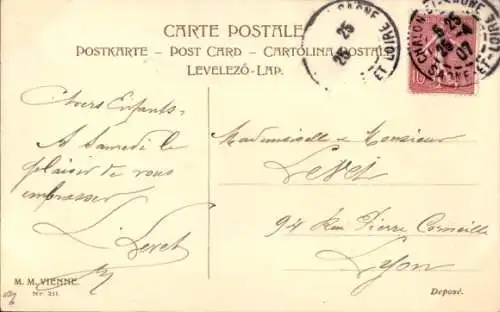 CARTE POSTALE
POSTKARTE – POST CARD – CARTOLINA POSTALE
LEVELEZŐ-LAP.
CHALON-S-SAONE
SAONE-ET-LOIRE
25
25
5 25
25 -4
07
10
Chers Enfants
A Samedi le
plaisir de vous
embrasser
L. Levet
Mademoiselle et Monsieur
Levet
94 Rue Pierre Corneille
Lyon
M. M. VIENNE.
Nr. 211
Deposé.